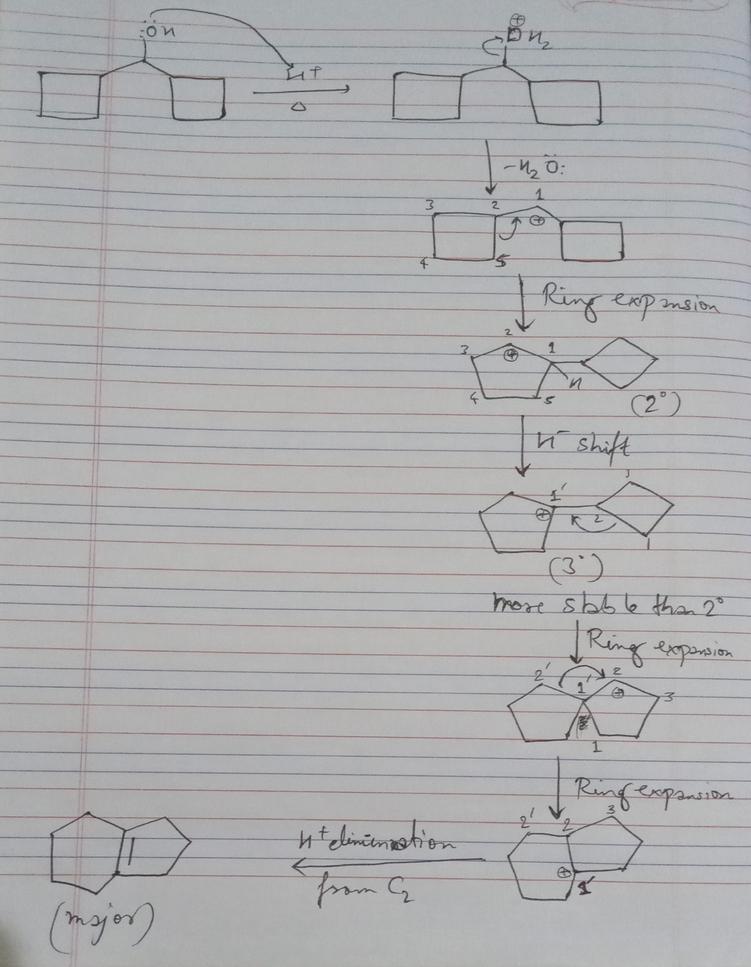 :ÖH
H+
Δ
⊕
OH2
-H2Ö:
3 2 1
⊕
4 5
Ring expansion
2
3 ⊕ 1
H
4 5
(2°)
H⁻ shift
1
1'
⊕ 2
1
(3°)
more stable than 2°
Ring expansion
2' 1' 2
⊕ 3
1
Ring expansion
2' 2 3
⊕ 1'
H+ elimination
from C2
(major)